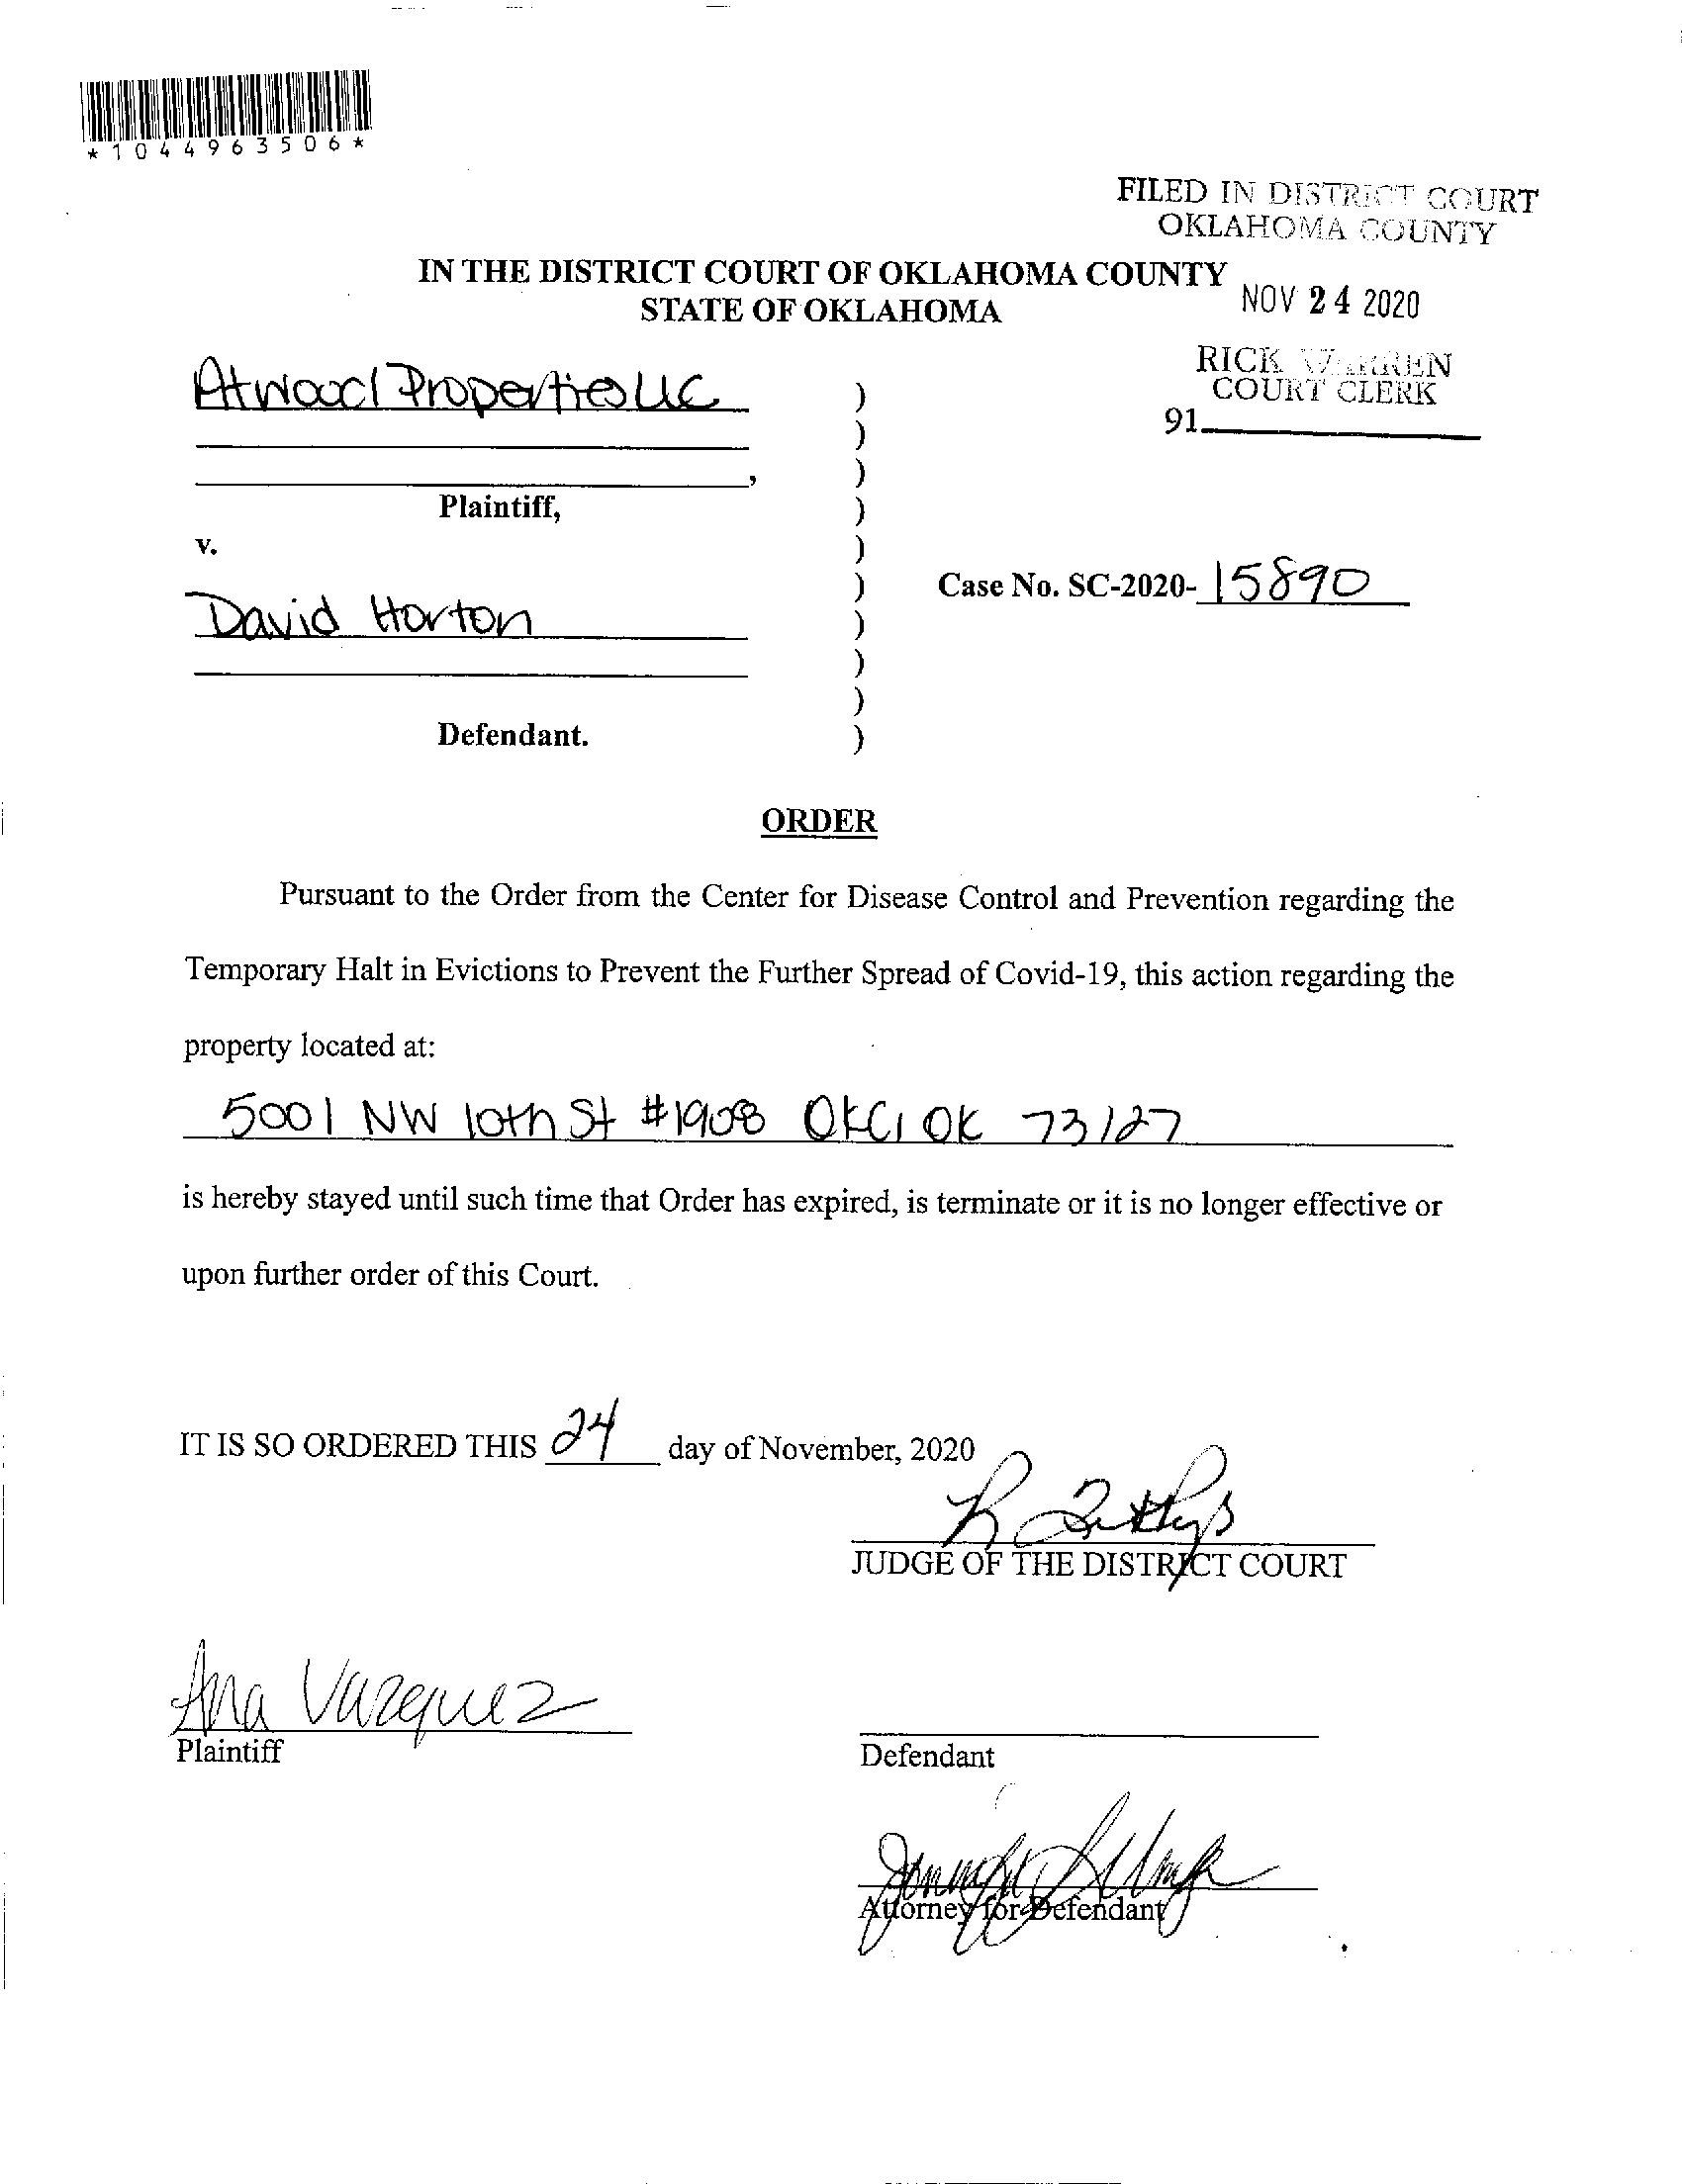 *1044963506*
FILED IN DISTRICT COURT
OKLAHOMA COUNTY
IN THE DISTRICT COURT OF OKLAHOMA COUNTY
STATE OF OKLAHOMA
NOV 24 2020
RICK WARREN
COURT CLERK
91
Atwood Properties LLC )
)
, )
Plaintiff, )
v. )
) Case No. SC-2020- 15890
David Horton )
)
)
Defendant. )
ORDER
Pursuant to the Order from the Center for Disease Control and Prevention regarding the
Temporary Halt in Evictions to Prevent the Further Spread of Covid-19, this action regarding the
property located at:
5001 NW 10th St #1908 OKC, OK 73127
is hereby stayed until such time that Order has expired, is terminate or it is no longer effective or
upon further order of this Court.
IT IS SO ORDERED THIS 24 day of November, 2020
JUDGE OF THE DISTRICT COURT
Ana Vazquez
Plaintiff
Defendant
Attorney for Defendant